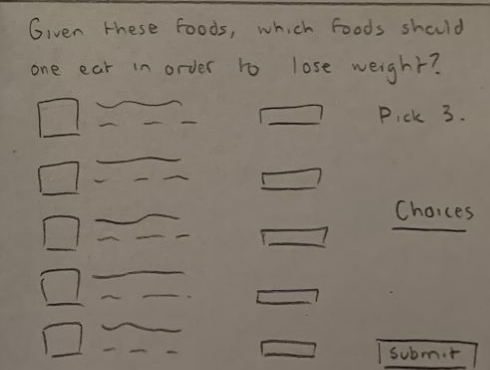 Given these foods, which foods should
one eat in order to lose weight?
Pick 3.
Choices
Submit